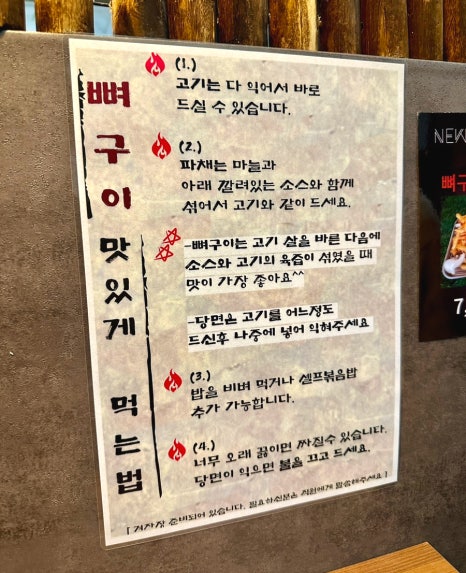 뼈구이 맛있게 먹는법
(1.)
고기는 다 익어서 바로
드실 수 있습니다.
(2.)
파채는 마늘과
아래 깔려있는 소스와 함께
섞어서 고기와 같이 드세요.
-뼈구이는 고기 살을 바른 다음에
소스와 고기의 육즙이 섞였을 때
맛이 가장 좋아요^^
-당면은 고기를 어느정도
드신후 나중에 넣어 익혀주세요
(3.)
밥을 비벼 먹거나 셀프볶음밥
추가 가능합니다.
(4.)
너무 오래 끓이면 짜질수 있습니다.
당면이 익으면 불을 끄고 드세요.
[ 겨자장 준비되어 있습니다. 필요하신분은 직원에게 말씀해주세요 ]
NEW
뼈구
7,